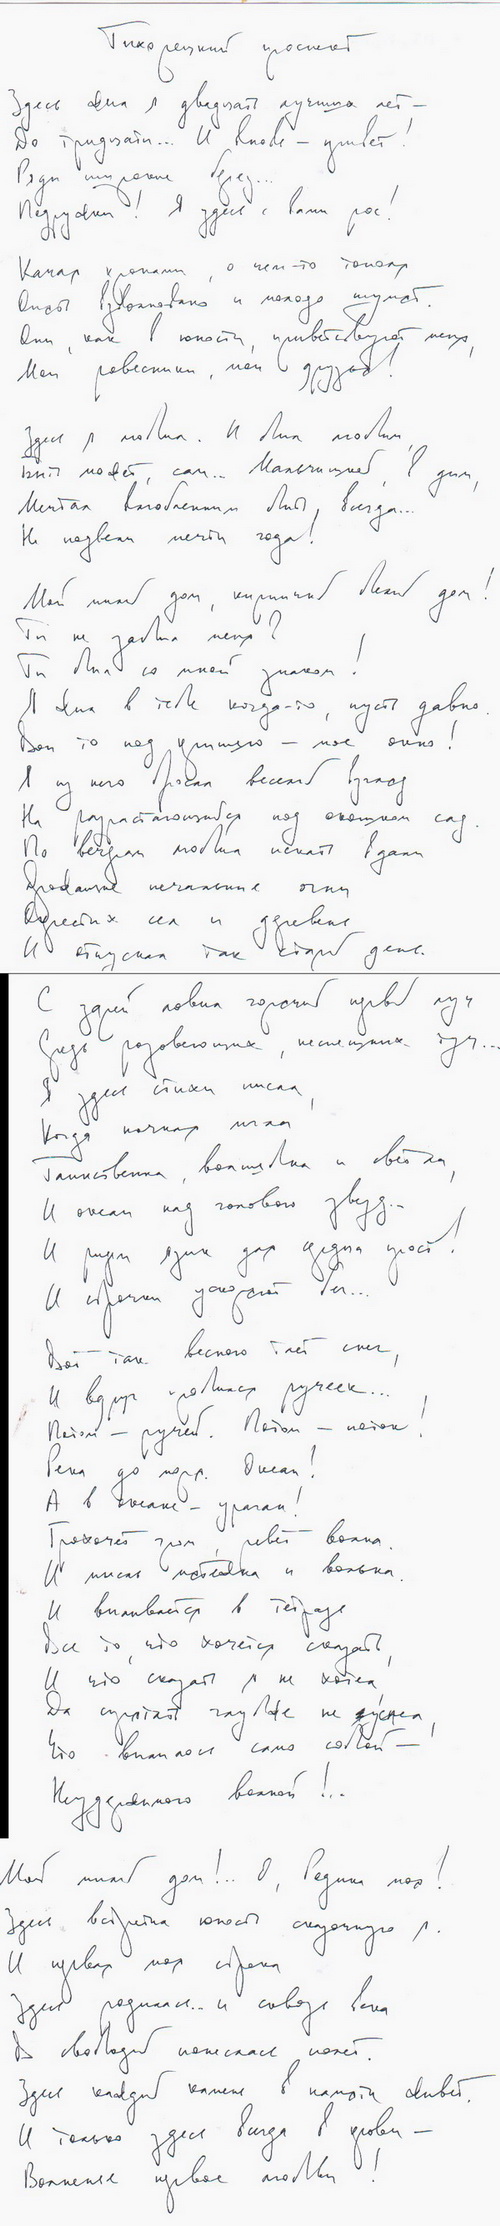 Тихорецкий проспект
Здесь жил я двадцать лучших лет –
До тридцати... И вновь – привет!
Ряды широкие берез...
Подружки! Я здесь с вами рос!
Качая кронами, о чем-то тополя
Опять взволновано и молодо шумят.
Они, как в юности, приветствуют меня,
Мои ровесники, мои друзья!
Здесь я любил. И был любим,
Быть может, сам... Мальчишкой, в дым,
Мечтал влюбленным быть, всегда...
Не подвели мечты года!
Мой милый дом, кирпичный белый дом!
Ты не забыл меня?
Ты был со мной знаком!
Я жил в тебе когда-то, пусть давно.
Вон то под крышею – мое окно!
Я из него бросал веселый взгляд
На разрастающийся под окошком сад.
По вечерам любил искать вдали
Дрожащие печальные огни
Окрестных сел и деревень
И отпускал так старый день.
С зарей ловил горячий первый луч
Средь розовеющих, неспешных туч...
Я здесь стихи писал,
Когда ночная мгла
Таинственна, волшебна и светла,
И океан над головою звезд...
И рифм язык для сердца прост!
И строчки ускоряют бег...
Вот так весною тает снег,
И вдруг пробился ручеек...
Потом – ручей. Потом – поток!
Река до моря. Океан!
А в океане – ураган!
Грохочет гром, ревет волна.
И мысль мятежна и вольна.
И выливается в тетрадь
Все то, что хочется сказать,
И что сказать я не хотел,
Да спрятать глубже не сумел,
Что вылилось само собой –
Неудержимою волной!..
Мой милый дом!.. О, Родина моя!
Здесь встретил юность сказочную я.
И первая моя строка
Здесь родилась... и сквозь века
В свободный понеслась полет.
Здесь каждый камень в памяти живет.
И только здесь всегда в крови –
Волненье первое любви!